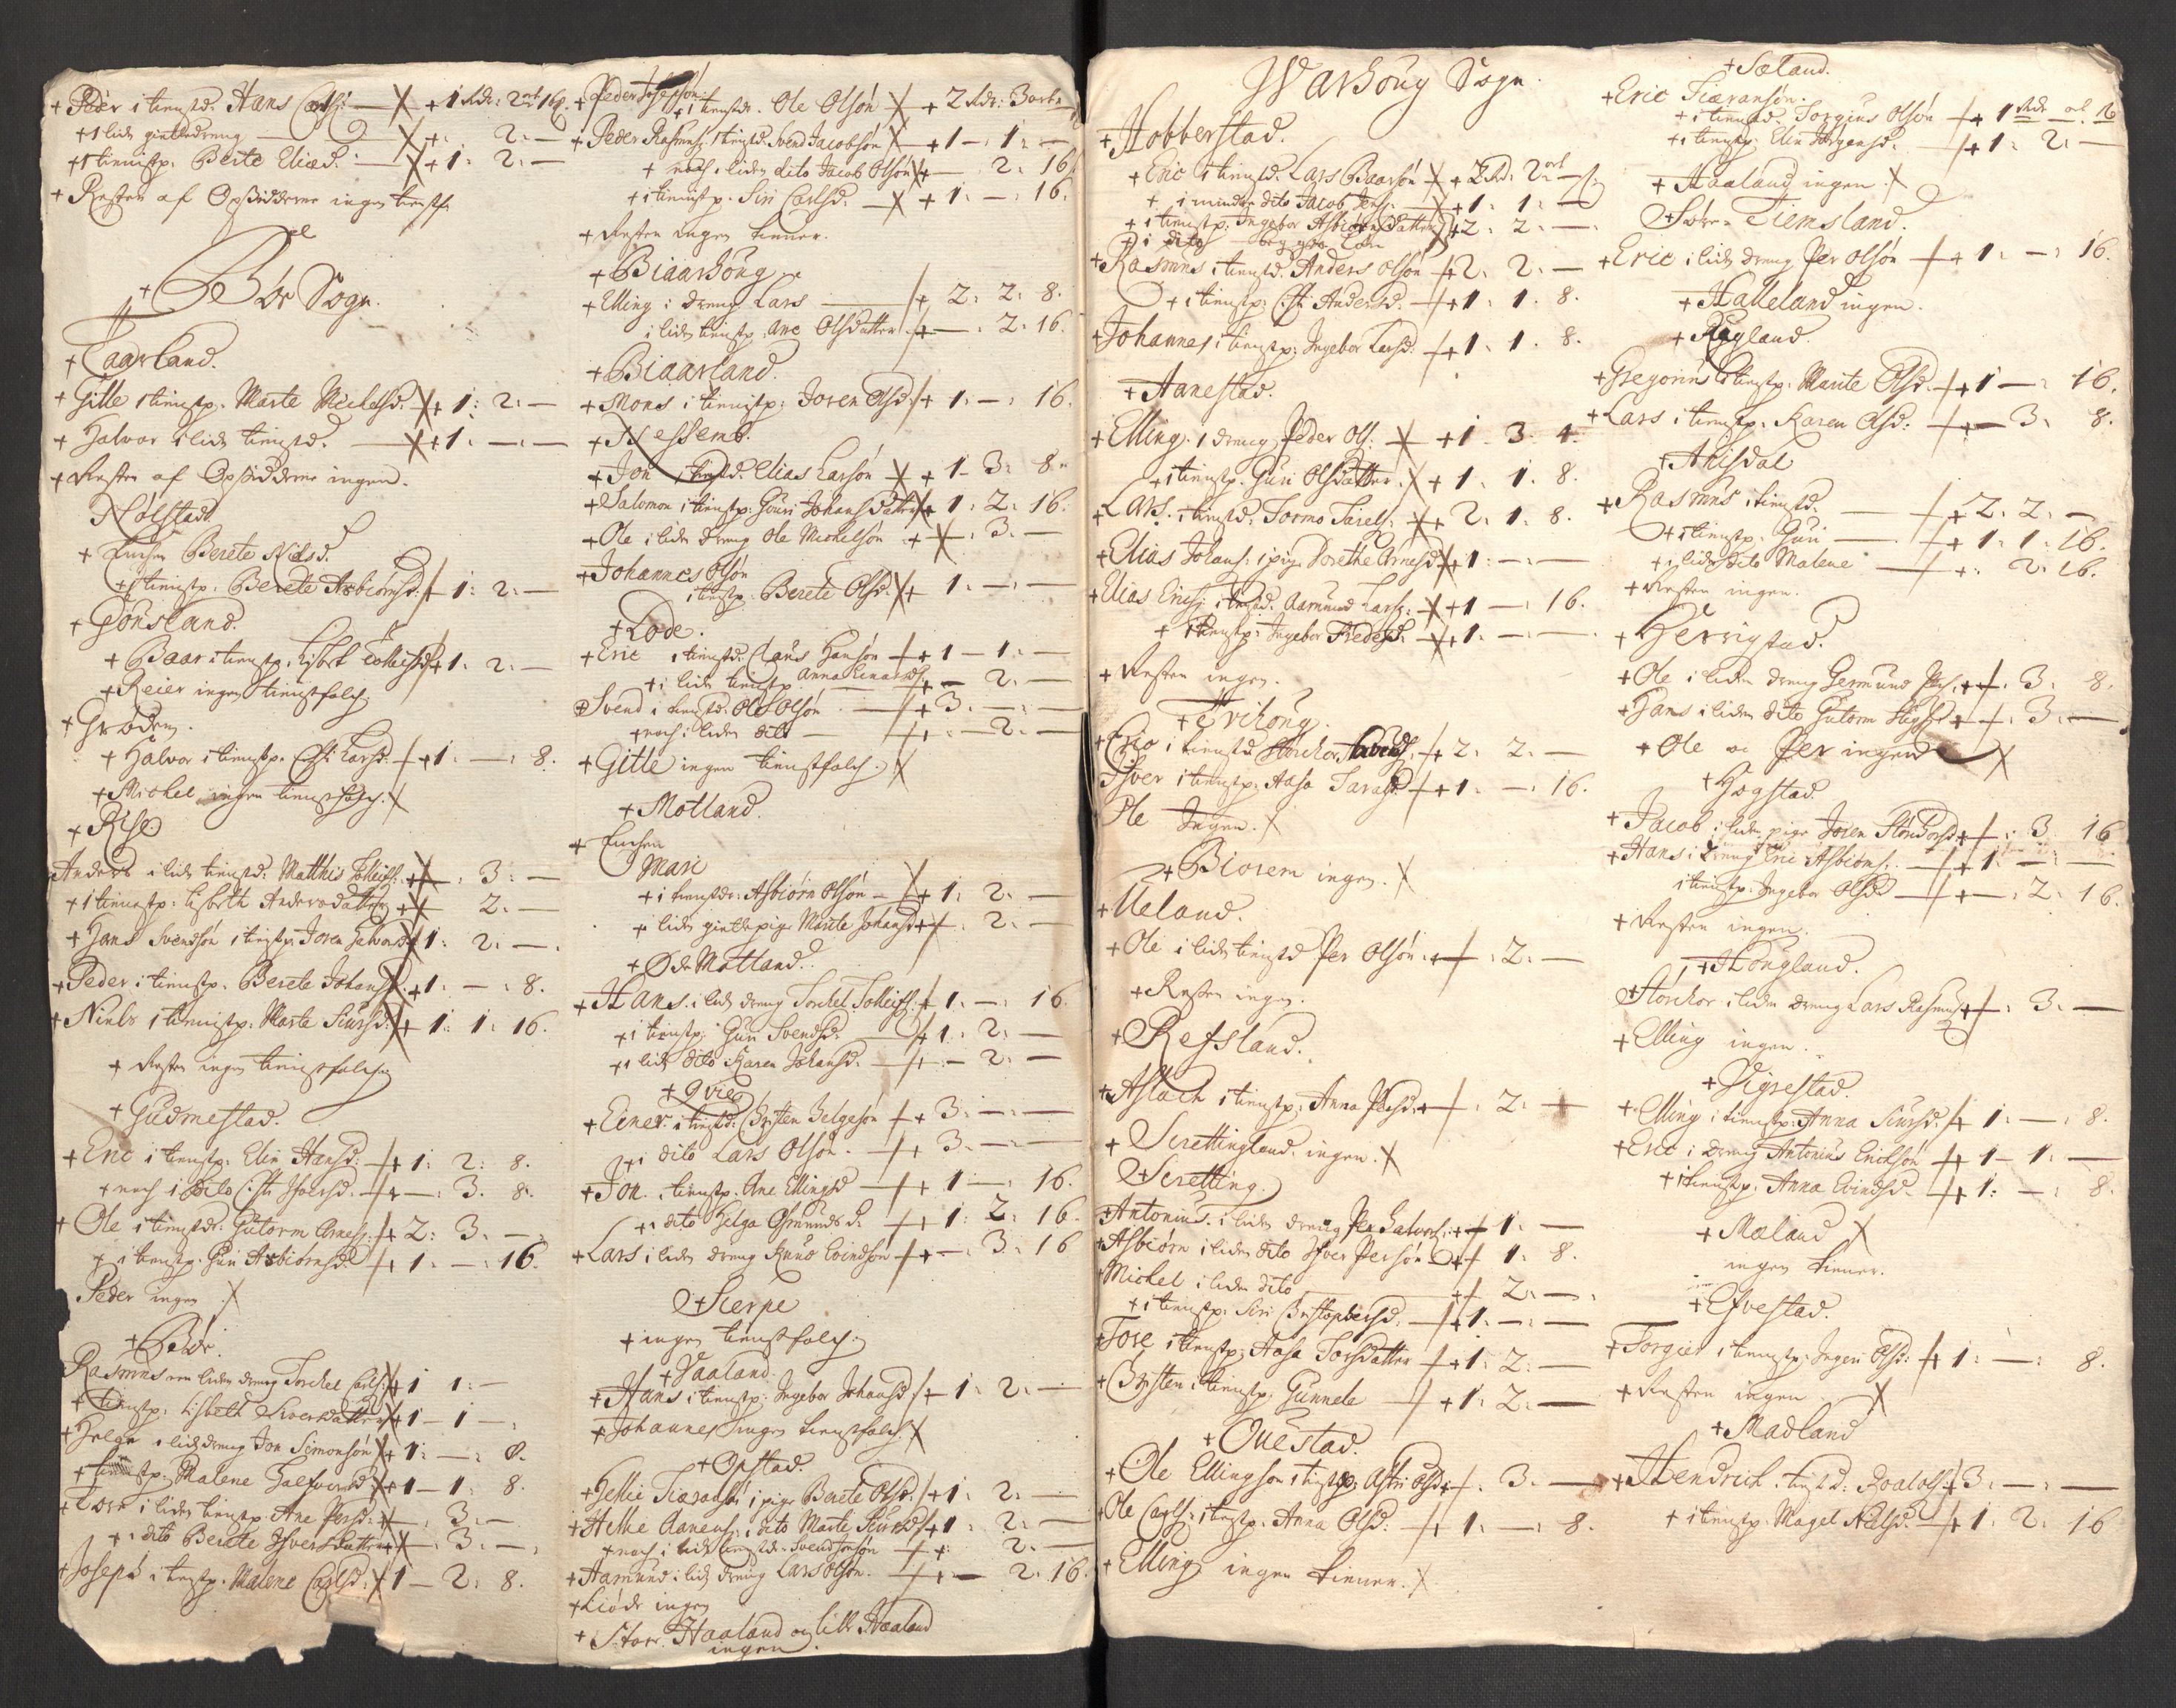 + Peder i tienstd. Hans Carls: — + 1 Rdr: 2 ort 16 s.
+ 1 liden giettedreng — + : 2: —
+ 1 tienistp. Berte Eliæd. — + 1: 2: —
+ Resten af Opsidderne ingen
+ Bøe Sogn.
+ Taarland.
+ Gitle 1 tienistp. Marte Michelsd. + 1: 2: —
+ Halvor 1 liden tienstd. — + 1: —: —
+ Resten af Opsidderne ingen.
Nølstad.
+ Enchen Berete Nielsd.
+ 1 tienistp. Berete Asbiornsd: + 1: 2: —
+ Gonsland.
+ Baar i tienstp. Lisbet Tollefsd + 1: 2: —
+ Reier ingen tienistfolch
+ Grødem.
+ Halvor i tienstp. Larsd. + 1: —: 8.
+ Michel ingen tienstfolch.
+ Rise
Anders i liden tienstd. Matthis Tolleifs: + : 3: —
+ 1 tienistp: Lisbeth Andersdatter + 2: —
+ Hans Svendsøn i tienstp: Joren Halvorsd + 1: 2: —
+ Peder i tienistp. Berete Johansd. + 1: —: 8.
+ Niels 1 tienistp: Marte Siursd: + 1: 1: 16.
+ Resten ingen tienistfolch
+ Gudmestad.
+ Eric i tienstp. Elin Hansd: + 1: 2: 8.
+ noch i Dito Ifversd. + —: 3: 8.
+ Ole i tienstdr. Gutorm Arnes: + 2: 3: —
+ i tienstp. Guri Asbiornsd + 1: —: 16.
Peder ingen
+ Bøe.
Rasmus en liden dreng Torchel Carls: + 1 1: —
+ tienstp: Lisbeth Siversdatter + 1 — 1 —
+ Helge 1 liden dreng Jon Simonsøn + 1: —: 8.
+ tienstp. Malene Halfvorsd + 1 — 1: 8.
+ Tore i liden tienstp Ane Persd: + : 3: —
+ i dito Berete Ifversdatter + : 3: —
+ Joseph i tienstp. Malene Carlsd: + 1 — 2: 8.
+ Peder Josepsøn:
+ i tienstdr. Ole Olsøn + 2 Rdr: 3 ort —
+ Peder Rasmus: i tienstd. Svend Jacobsøn + 1 — 1: —
+ noch i liden dito Jacob Olsøn + — 2: 16
+ i tienistp. Siri Carlsd. + 1: —: 16.
+ Resten ingen tienner.
+ Biaarhoug
+ Elling i dreng Lars — + 2: 2: 8.
i liden tienstp. Ane Olsdatter + —: 2: 16.
+ Biaarland.
+ Mons i tienistp: Joren Olsd: + 1: —: 16.
+ Nessemb.
+ Jon i tienstd. Elias Larsøn + 1 — 3: 8.
+ Salomon i tienstp: Gouri Johansdatter + 1: 2: 16.
+ Ole i liden dreng Ole Michelsøn + : 3: —
+ Johannes Olsøn
i tienstp. Berete Olsd. + 1: —: —
+ Lode.
+ Eric i tienstd. Claus Hansøn + 1 — 1: —
+ i liden tienstp. Anna Einarsd + — 2: —
+ Svend i tienstd. Ole Olsøn — + 3: —: —
+ noch i liden dito — + : — 2: —
+ Gitle ingen tienstfolch.
+ Motland.
+ Enchen
Mari
+ i tienstdr: Asbiørn Olsøn — + 1: 2: —
+ i liden giettepige Marite Johansd + : 2: —
+ Øde Motland.
+ Hans. i liden dreng Torchel Tolleifs. + 1: —: 16.
+ i tienstp: Guri Svendsd. + 1: 2: —
+ i liden dito Karen Johansd. + : — 2: —
+ Qvie
+ Einer: i tienstd: Christen Helgesøn + 3: —: —
+ i dito Lars Olsøn. + 3: —: —
+ Jon. i tienstp. Ane Ellingsd + 1: —: 16.
+ i dito Helga Osmundsd. + 1: 2: 16.
+ Lars i liden dreng Knud Evindsøn + —: 3: 16
+ Sierpe
+ ingen tienstfolch.
+ Vaaland.
+ Hans i tienstp. Ingebor Johansd: + 1: 2: —
+ Johannes ingen tienstfolch.
+ Opstad.
+ Hellie Tiæransøn i pige Berete Olsd: + 1: 2: —
+ Hellie Aanens: i dito Marte Siursd + 1: 2: —
+ noch i liden tienstdr Svend Jonsøn + : 2: —
+ Aamund i liden dreng Lars Olsøn. + : — 2: 16.
+ Liøde ingen
+ Stoer Haaland og lille Haaland
ingen.
Warhoug Sogn.
+ Hobberstad.
+ Eric i tienstd. Lars Baarsøn + 2 Rd: 2 ort —
+ i mindre dito Jacob Jens: + 1: 1: —
+ i tienstp: Ingebor Asbiørnsdatter + 2: 2: —
+ i dito
+ Rasmus i tienstd. Anders Olsøn + 2: 2: —
+ i tienstp: Andersd. + 1: 1: 8.
+ Johannes i tienstp: Ingebor Larsd. + 1: 1: 8.
+ Aanestad.
+ Elling. 1 dreng Peder Ols: + 1: 3: 4.
+ i tienstp. Guri Olsdatter. + 1: 1: 8.
+ Lars. i tienstd: Tormo Tarels: + 2: 1: 8.
+ Elias Johans: i pige Dorethe Arnesd + 1: —: —
+ Elias Erics: i tienstd: Aamund Lars: + 1 —: 16.
+ i tienstp: Ingebor Thedesd. + 1: —: —
+ Resten ingen.
+ Trihoug.
+ Eric i tienstd Storchor + 2: 2: —
Ifver i tienstp: Aasa + 1: —: 16.
Ole Ingen.
+ Biorem ingen.
+ Ueland.
+ Ole i liden tienstd Per Olsøn + : 2: —
+ Resten ingen.
+ Refsland.
+ Aslach i tienstp: Anna Persd + : 2: —
+ Screttingland ingen.
+ Scretting.
+ Antonius. i liden dreng Per Halvors: + 1: —
+ Asbiørn i liden dito Ifver Persøn + 1: 8.
+ Michel i liden dito + 2: —
+ i tienstp: Siri Christophersd. + 1: —: —
+ Tore i tienstp: Aasa Torsdatter + 1: 2: —
+ Christen i tienstp: Gunnele + 1: 2: —
+ Ouestad.
+ Ole Ellingsøn i tienstp. Astri Olsd + : 3: —
+ Ole Carls: i tienstp. Anna Olsd: + 1: —: 8.
+ Elling ingen tienner.
+ Sæland.
+ Eric Tiæransøn.
+ i tienstd. Torgius Olsøn + 1 Rdr ort 16
+ i tienstp: Elin Jørgensd. + 1: 2: —
+ Haaland ingen.
+ Søre Tiemsland.
+ Eric i liden dreng Per Olsøn + 1: —: 16.
+ Halleland ingen.
+ Rygland.
+ Gregorius i tienstp: Marite Olsd: + 1 —: 16.
+ Lars i tienstp: Karen Olsd: + — 3: 8.
+ Ahisdal
+ Rasmus i tienstd. — + 2: 2: —
+ i tienstp: Guri — + 1: 1: 16.
+ i liden dito Malene — + : 2: 16.
+ Resten ingen.
+ Herrigstad.
+ Ole i liden dreng Germund Pers: + : 3: 8.
+ Hans i liden dito Gutorm + : 3: —
+ Ole oc Per ingen
+ Hogstad.
+ Jacob i liden pige Joren Storchorsd: + : 3: 16
+ Hans i dreng Eric Asbiorns: + 1: —: —
i tienstp: Ingebor Olsd + —: 2: 16.
+ Resten ingen.
+ Hougland.
+ Storchor i liden dreng Lars Rasmus: + : 3: —
+ Elling ingen.
+ Vigrestad.
+ Elling i tienstp: Anna Siursd: + 1: —: 8.
+ Eric i dreng Antonius Erichsøn + 1 — 1: —
+ i tienstp: Anna Evindsd. + 1: —: 8.
+ Mæland
ingen tienner.
+ Efvestad.
+ Torgier i tienstp: Ingeri Olsd: + 1: —: 8.
+ Resten ingen
+ Madland
+ Hendrich. i tienstd: Roalds: + 3: —: —
+ i tienstp. Magel Nielsd. + 1: 2: 16